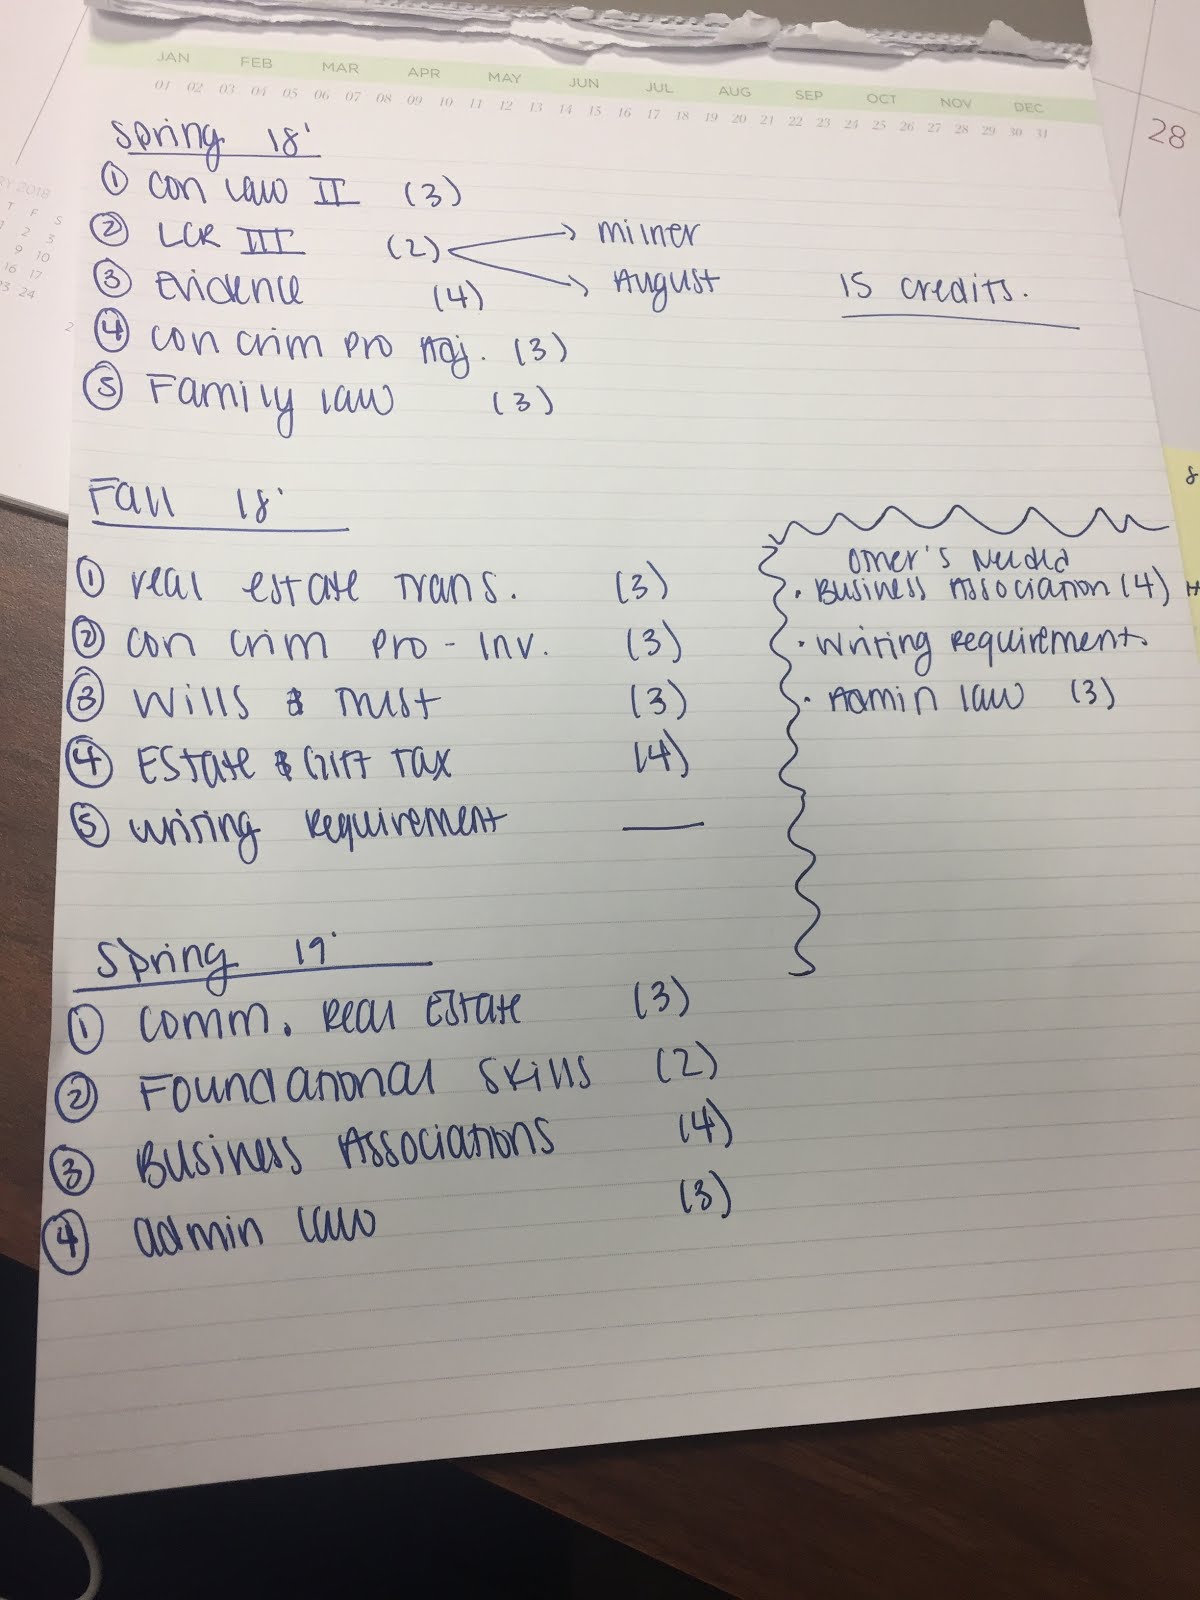 JAN FEB MAR APR MAY JUN JUL AUG SEP OCT NOV DEC
01 02 03 04 05 06 07 08 09 10 11 12 13 14 15 16 17 18 19 20 21 22 23 24 25 26 27 28 29 30 31
Spring 18'
① Con Law II (3)
② LCR III (2) Milner
August
③ Evidence (4)
15 credits.
④ Con Crim Pro Adj. (3)
⑤ Family Law (3)
Fall 18'
① real estate Trans. (3)
② Con Crim Pro - Inv. (3)
③ Wills & Trust (3)
④ Estate & Gift Tax (4)
⑤ Writing Requirement
Other's Needed
• Business Association (4)
• Writing Requirement.
• Admin Law (3)
Spring 19'
① Comm. Real Estate (3)
② Foundational Skills (2)
③ Business Associations (4)
④ admin law (3)
28
2018
T F S
2 3
9 10
16 17
23 24
2
8